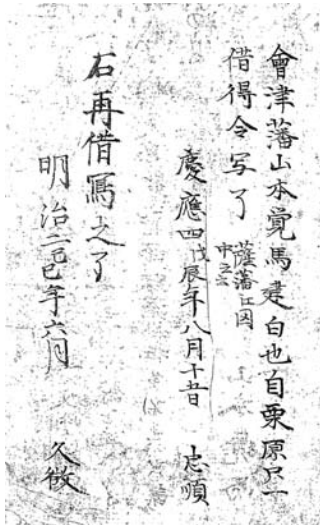 會津藩山本覚馬建白也自栗原只一
借得令写了 薩藩江囚中之云
慶應四戊辰年八月十五日 忠順
右再借寫之了
明治二己巳年六月 久徴